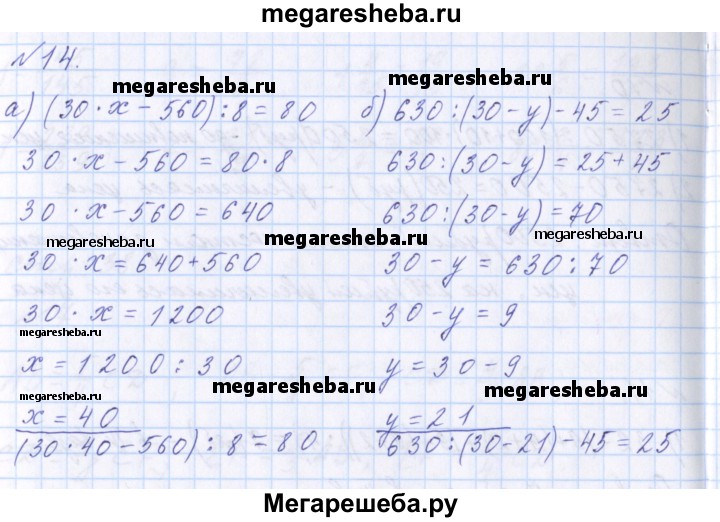 megaresheba.ru
№14.
megaresheba.ru megaresheba.ru
а) (30·х-560):8=80 б) 630:(30-у)-45=25
30·х-560=80·8 630:(30-у)=25+45
30·х-560=640 630:(30-у)=70
megaresheba.ru megaresheba.ru
30·х=640+560 30-у=630:70
30·х=1200 30-у=9
megaresheba.ru
х=1200:30 у=30-9
megaresheba.ru megaresheba.ru megaresheba.ru
х=40 у=21
(30·40-560):8=80 630:(30-21)-45=25
Мегарешеба.ру